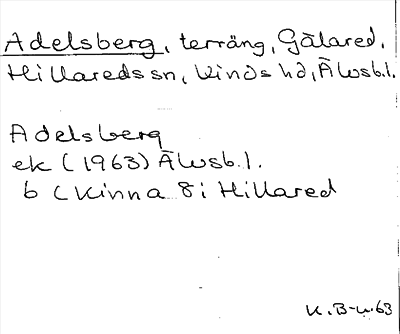 Adelsberg, terräng, Gålared,
Hillareds sn, Kinds hd, Älvsb.l.
Adelsberg
ek (1963) Älvsb.l.
b (Kinna 8i Hillared
K.B-u.63